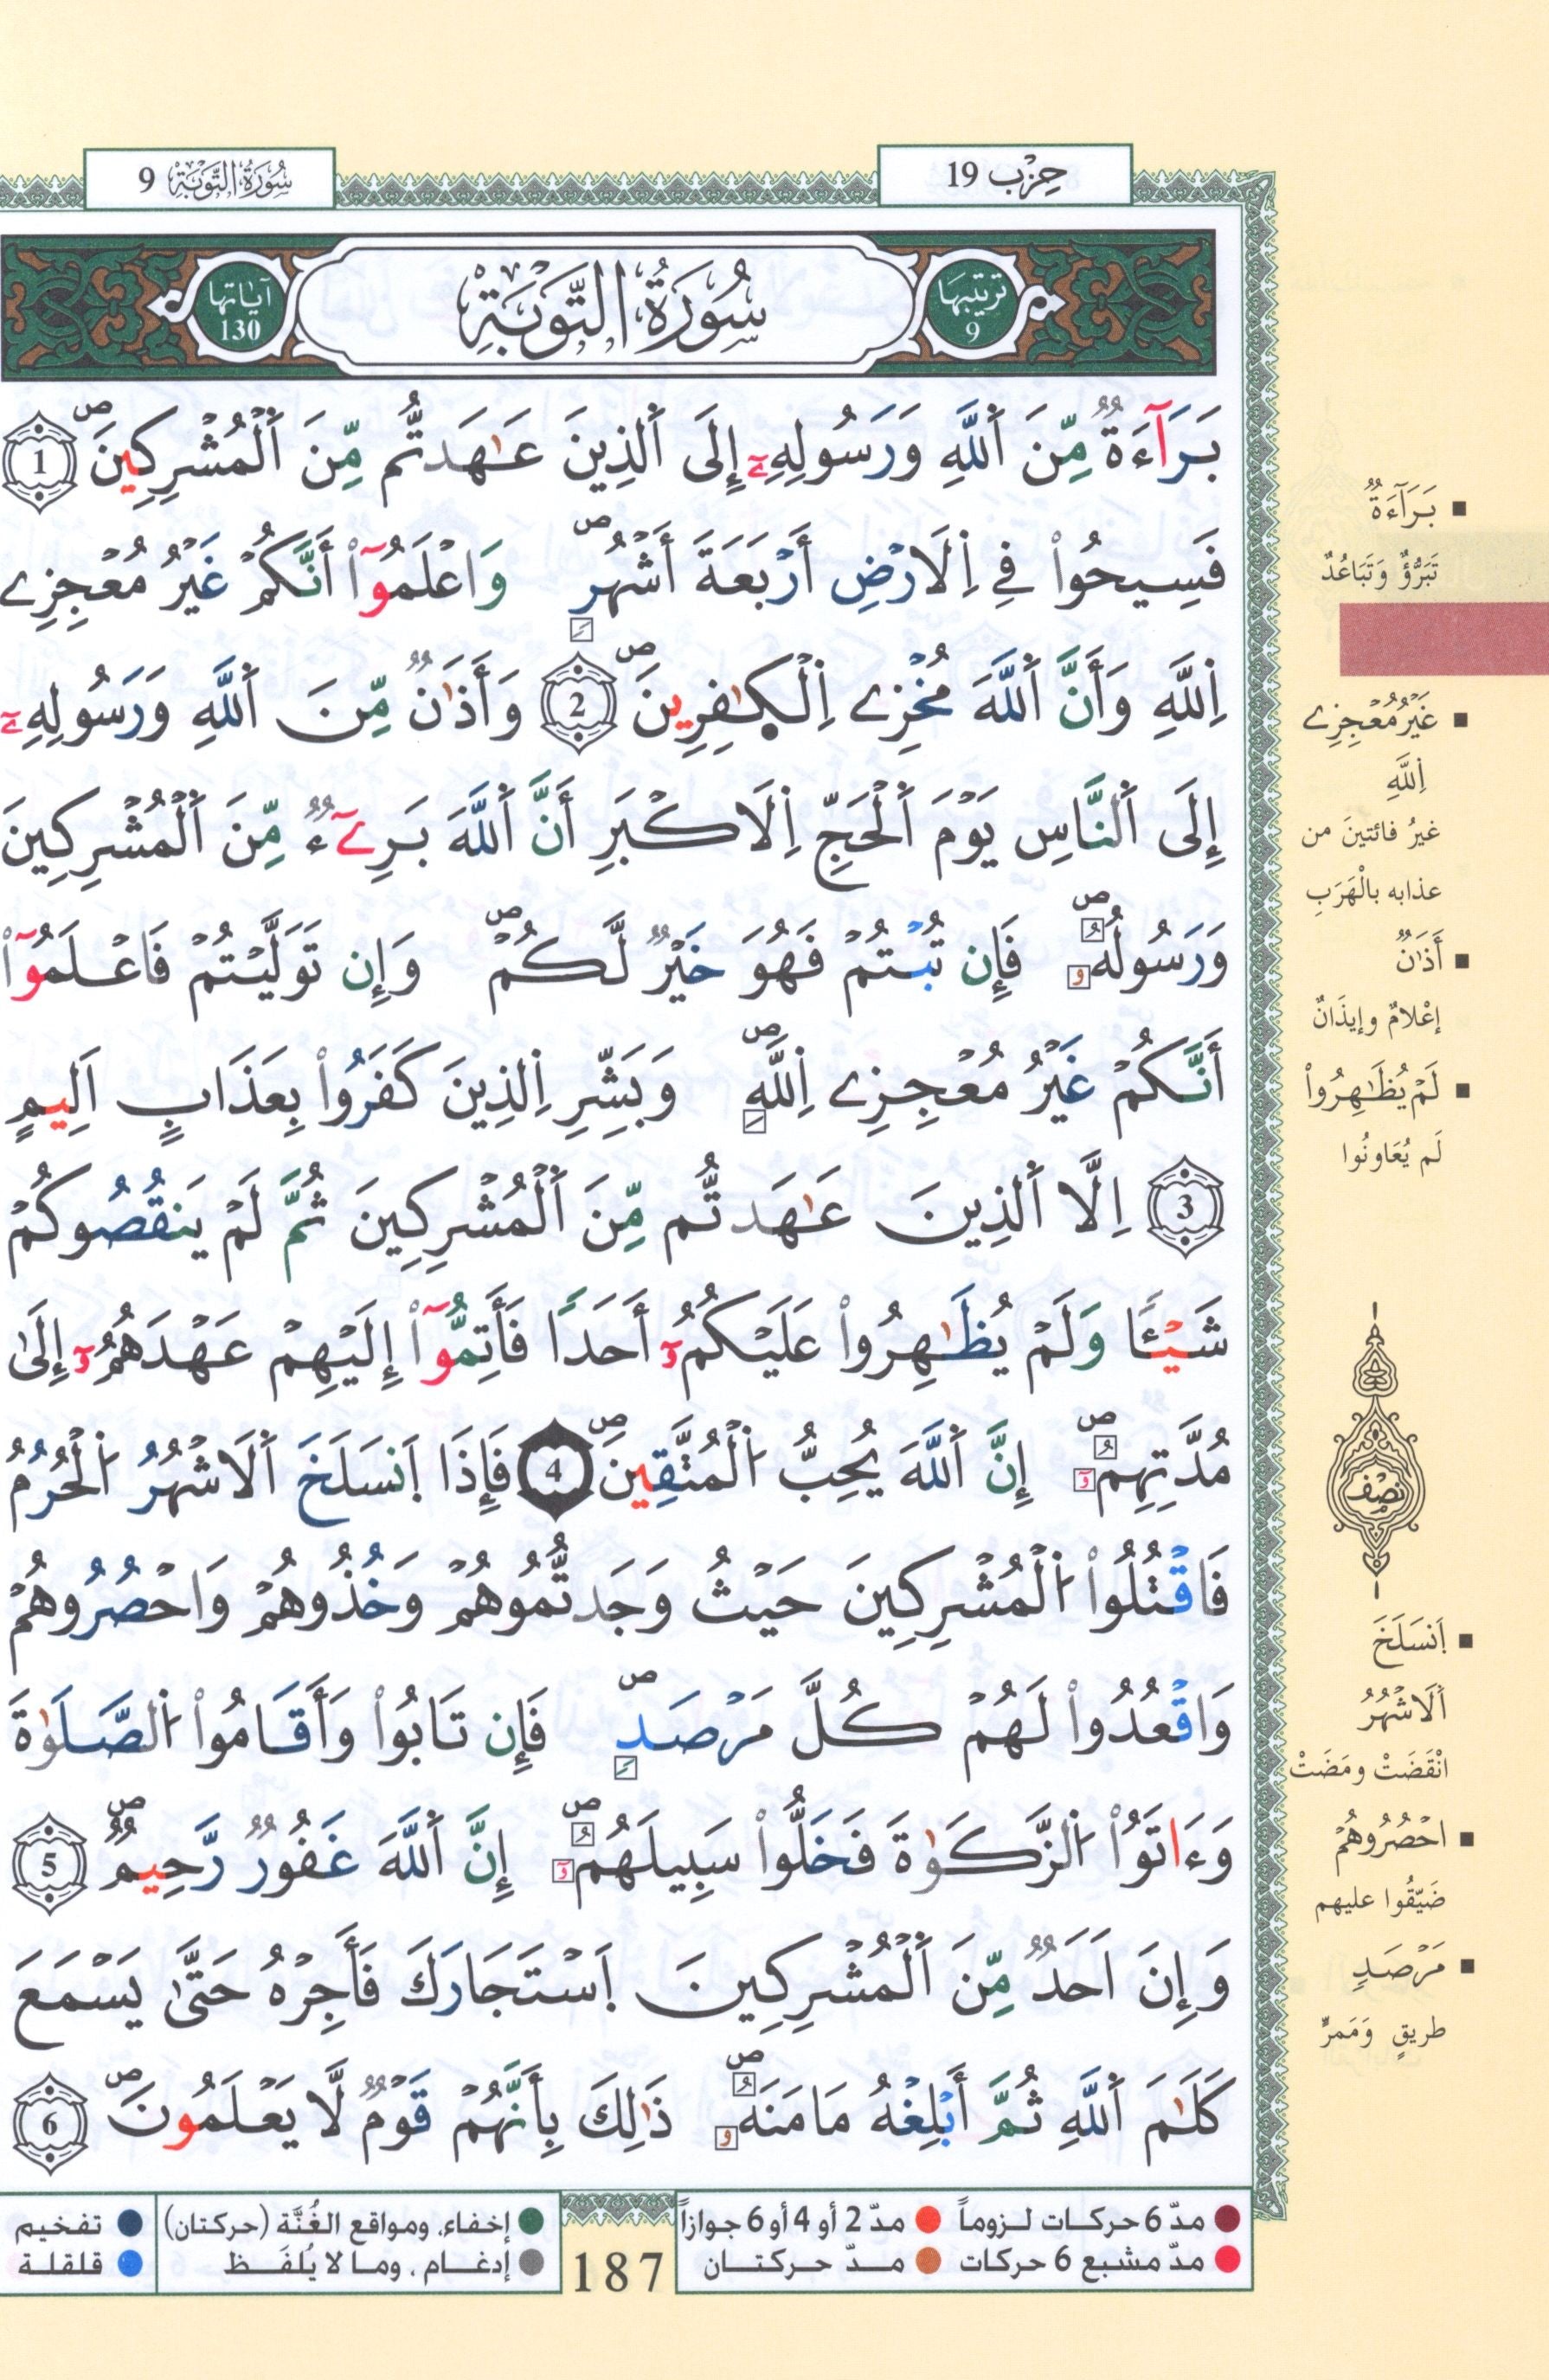 حِزْب 19
سُورَةُ التَّوْبَةِ 9
ترتيبها 9
سُورَةُ التَّوْبَةِ
آياتها 130
بَرَآءَةٌ مِّنَ اَ۬للَّهِ وَرَسُولِهِۦٓ إِلَى اَ۬لذِينَ عَٰهَدتُّم مِّنَ اَ۬لْمُشْرِكِينَۖ 1
فَسِيحُواْ فِے اِ۬لَارْضِ أَرْبَعَةَ أَشْهُرٖۖ وَاعْلَمُوٓاْ أَنَّكُمْ غَيْرُ مُعْجِزِے
اِ۬للَّهِ وَأَنَّ اَ۬للَّهَ مُخْزِے اِ۬لْكٰ۪فِرِينَۖ 2 وَأَذَٰنٞ مِّنَ اَ۬للَّهِ وَرَسُولِهِۦٓ
إِلَى اَ۬لنَّاسِ يَوْمَ اَ۬لْحَجِّ اِ۬لَاكْبَرِ أَنَّ اَ۬للَّهَ بَرِےٓءٞ مِّنَ اَ۬لْمُشْرِكِينَ
وَرَسُولُهُۥۖ فَإِن تُبْتُمْ فَهُوَ خَيْرٞ لَّكُمْۖ وَإِن تَوَلَّيْتُمْ فَاعْلَمُوٓاْ
أَنَّكُمْ غَيْرُ مُعْجِزِے اِ۬للَّهِۖ وَبَشِّرِ اِ۬لذِينَ كَفَرُواْ بِعَذَابٍ اَلِيمٍ
3 اِلَّا اَ۬لذِينَ عَٰهَدتُّم مِّنَ اَ۬لْمُشْرِكِينَ ثُمَّ لَمْ يَنقُصُوكُمْ
شَيْـٔاٗ وَلَمْ يُظَٰهِرُواْ عَلَيْكُمُۥٓ أَحَداٗ فَأَتِمُّوٓاْ إِلَيْهِمْ عَهْدَهُمُۥٓ إِلَىٰ
مُدَّتِهِمُۥٓۖ إِنَّ اَ۬للَّهَ يُحِبُّ اُ۬لْمُتَّقِينَۖ 4 فَإِذَا اَ۪نسَلَخَ اَ۬لَاشْهُرُ اُ۬لْحُرُمُ
فَاقْتُلُواْ اُ۬لْمُشْرِكِينَ حَيْثُ وَجَدتُّمُوهُمْ وَخُذُوهُمْ وَاحْصُرُوهُمْ
وَاقْعُدُواْ لَهُمْ كُلَّ مَرْصَدٖۖ فَإِن تَابُواْ وَأَقَامُواْ اُ۬لصَّلَوٰةَ
وَءَاتَوُاْ اُ۬لزَّكَوٰةَ فَخَلُّواْ سَبِيلَهُمُۥٓۖ إِنَّ اَ۬للَّهَ غَفُورٞ رَّحِيمٞۖ 5
وَإِنَ اَحَدٞ مِّنَ اَ۬لْمُشْرِكِينَ اَ۪سْتَجَارَكَ فَأَجِرْهُ حَتَّىٰ يَسْمَعَ
كَلَٰمَ اَ۬للَّهِ ثُمَّ أَبْلِغْهُ مَامَنَهُۥۖ ذَٰلِكَ بِأَنَّهُمْ قَوْمٞ لَّا يَعْلَمُونَۖ 6
▪ بَرَآءَةٌ
تَبَرُّؤٌ وَتَبَاعُدٌ
▪ غَيْرُ مُعْجِزِے
اِ۬للَّهِ
غيرُ فائتينَ من
عذابه بالْهَرَبِ
▪ أَذَٰنٌ
إعْلامٌ وإيذَانٌ
▪ لَمْ يُظَٰهِرُواْ
لَم يُعَاونُوا
نِصْف
▪ اَ۪نسَلَخَ
اَ۬لَاشْهُرُ
انْقَضَتْ ومَضَتْ
▪ احْصُرُوهُمْ
ضَيِّقُوا عليهم
▪ مَرْصَدٍ
طريقٍ وَمَمرٍّ
● مدّ 6 حركـات لـزوماً ● مدّ 2 أو 4 أو 6 جوازاً
● مدّ مشبع 6 حركات ● مـدّ حركتـان
187
● إخفاء، ومواقع الغُنَّة (حركتان) ● تفخيم
● إدغـام ، ومـا لا يُلفَـظ ● قلقلـة